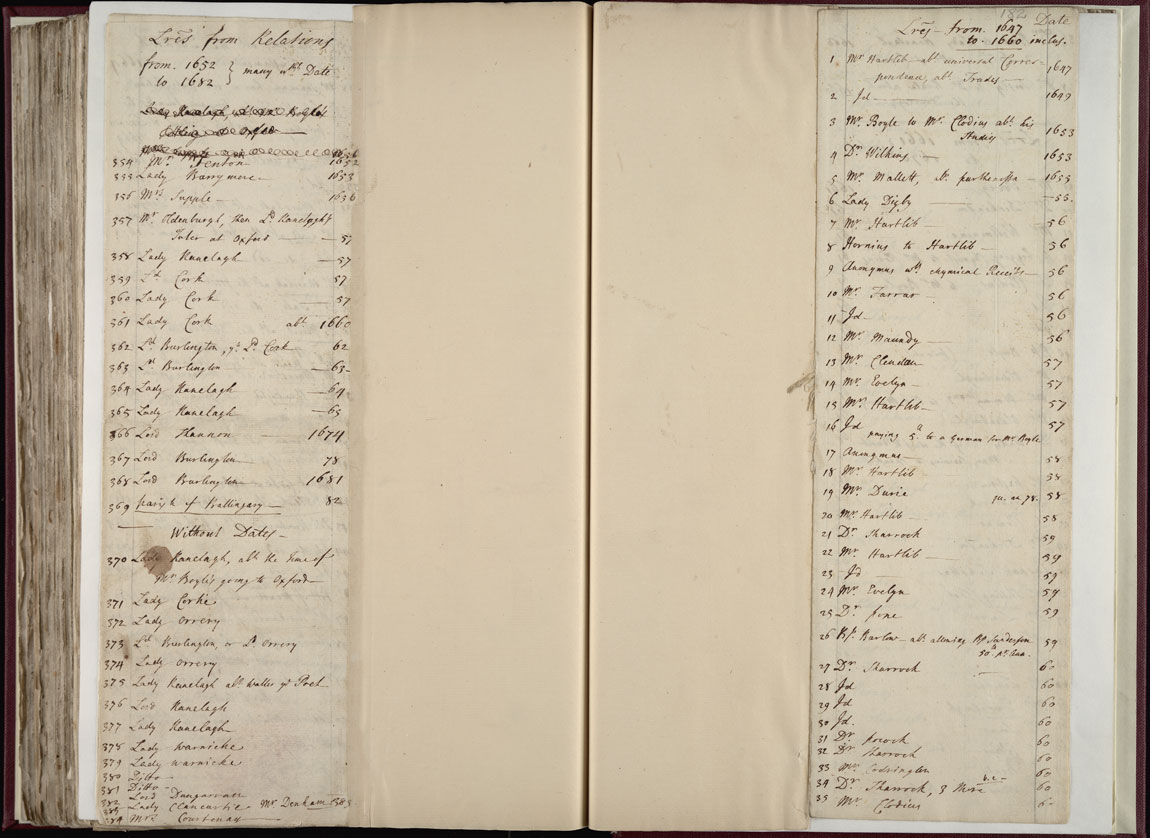 Lrēs from Relations
from. 1652 } many wt. Date
to 1682
354 Mr. Fenton 1652
355 Lady Barrymore — 1653
356 Mrs. Supple — 1656
357 Mr Oldenburgh, then Ld. Ranelagh's
Tutor at Oxford — 57
358 Lady Ranelagh — 57
359 Ld. Cork — 57
360 Lady Cork — 57
361 Lady Cork abt. 1660
362 Ld. Burlington, Ld. Cork 62
363 Ld. Burlington — 63
364 Lady Ranelagh — 64
365 Lady Ranelagh — 65
366 Lord Shannon — 1674
367 Lord Burlington — 78
368 Lord Burlington — 1681
369 parish of 82
Without Dates —
370 Lady Ranelagh, abt. the time of
Mr Boyle's going to Oxford —
371 Lady Corke
372 Lady Orrery
373 Ld. Burlington, or Ld. Orrery
374 Lady Orrery
375 Lady Ranelagh abt. Waller ye Poet
376 Lord Ranelagh
377 Lady Ranelagh
378 Lady Warwicke
379 Lady Warwicke
380 Ditto —
381 Ditto —
382 Lord Dungarvan
383 Lady Clancartie — Mr Denham 383
384 Mrs. Courtenay
182 Date
Lrēs — from 1647
to 1660 inclus.
1 Mr Hartlib abt. universal Corres-
pondence, abt. Trades — 1647
2 Id — 1647
3 Mr. Boyle to Mr. Clodius abt. his
Studies 1653
4 Dr. Wilkins — 1653
5 Mr. Mallett, 1653
6 Lady Digby — 55.
7 Mr. Hartlib — 56
8 Hornius to Hartlib — 56
9 Anonymus wth. chymical Receits — 56
10 Mr. Farrar — 56
11 Id — 56
12 Mr. Maundy — 56
13 Mr. 57
14 Mr. Evelyn — 57
15 Mr. Hartlib — 57
16 Id paying 5ll. to a German for Mr. Boyle 57
17 Anonymus — 58
18 Mr. Hartlib 58
19 Mr. Durie 58
20 Mr. Hartlib — 58
21 Dr. Sharrock 59
22 Mr. Hartlib — 59
23 Id — 59
24 Mr. Evelyn 59
25 Dr. 59
26 Bp. Barlow abt. allowing Bp Sanderson
50ll pr. Ann. 59
27 Dr. Sharrock 60
28 Id 60
29 Id 60
30 Id. 60
31 Dr. Pocock 60
32 Dr Sharrock 60
33 Mr. Codrington 60
34 Dr. Sharrock, 3 60
35 Mr. Clodius 60